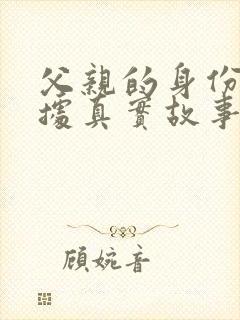 父親的身份
據真實故事
顧婉音